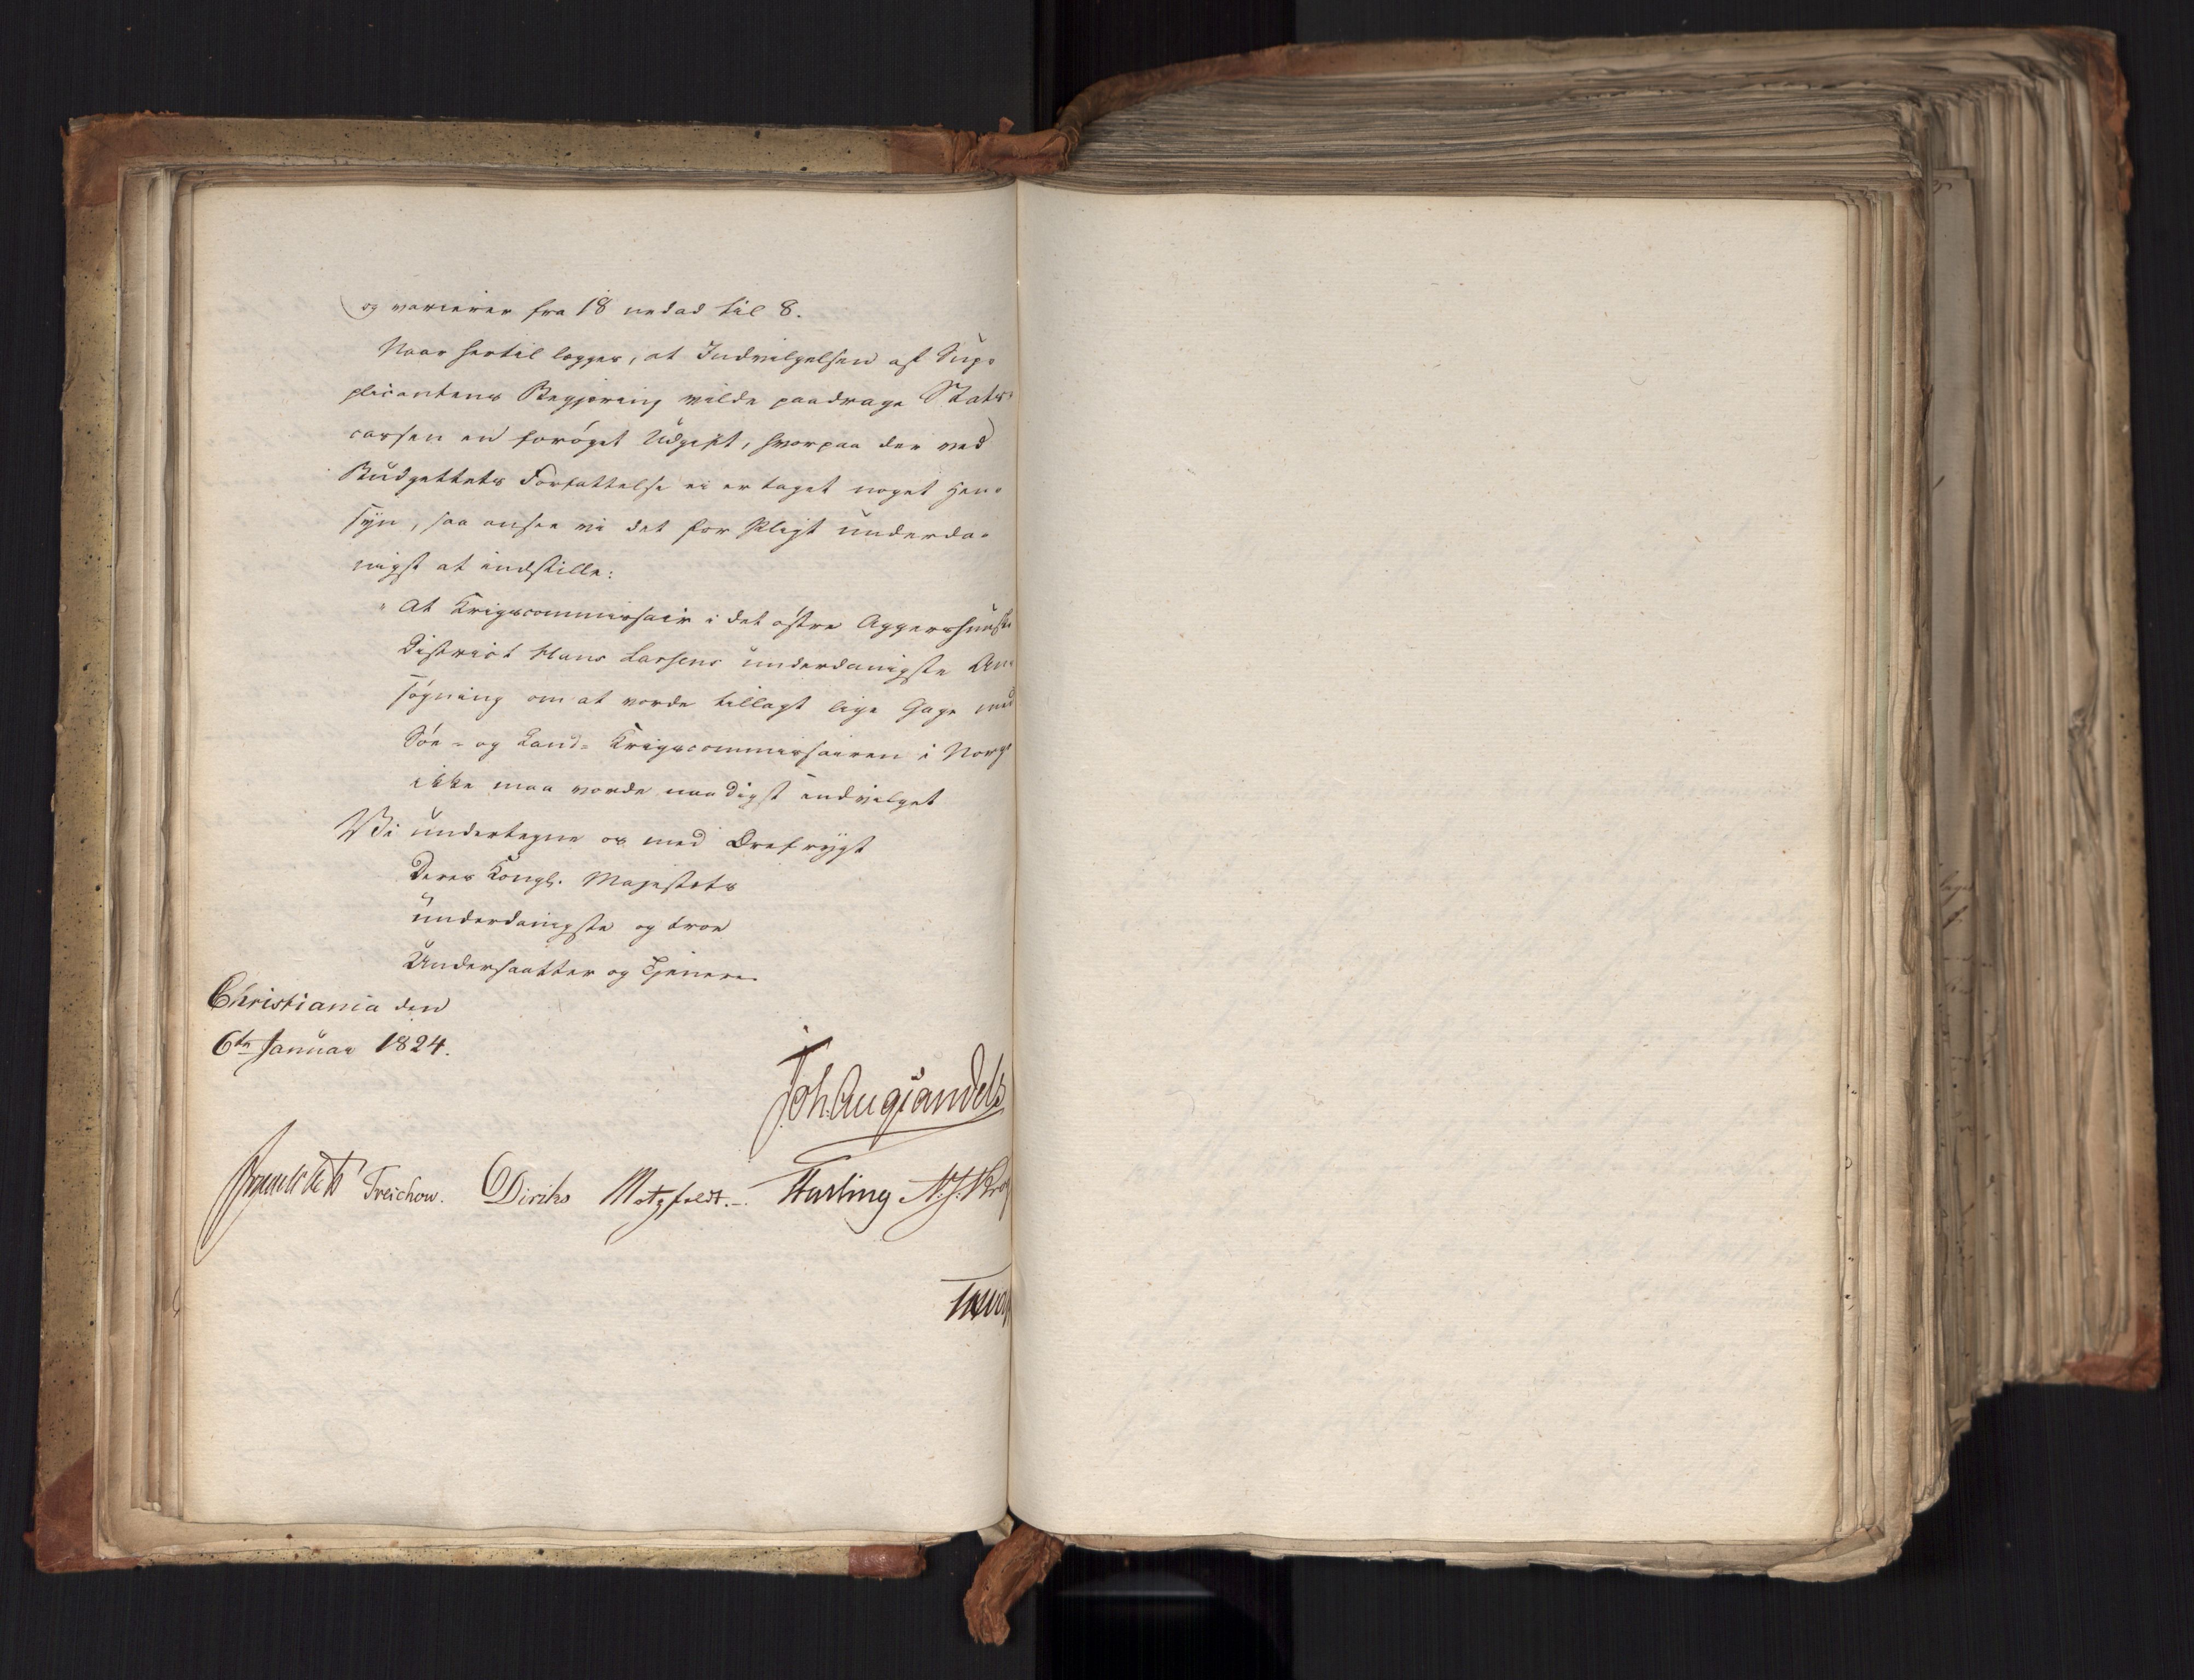 og varierer fra 18 nedad til 8.
Naar hertil lægges, at Indvilgelsen af Sup-
plicantens Begjæring vilde paadrage Stats-
cassen en forøget Udgift, hvorpaa der ved
Budgettets Forfattelse ei er taget noget Hen-
syn, saa ansee vi det for Pligt underda-
nigst at indstille:
" At Krigscommissair i det østre Aggershusiske
District Hans Larsens underdanigste An-
søgning om at vorde tillagt lige Gage med
Søe- og Land- Krigscommissairen i Norge
ikke maa vorde naadigst indvilget
Vi undertegne os med Ærefrygt
Deres Kongl. Majestets
underdanigste og troe
Undersaatter og Tjenere.
Christiania den
6te Januar 1824.
Joh. Aug Sandels
Treschow. Diriks Motzfeldt. Fasting N. J. Krog